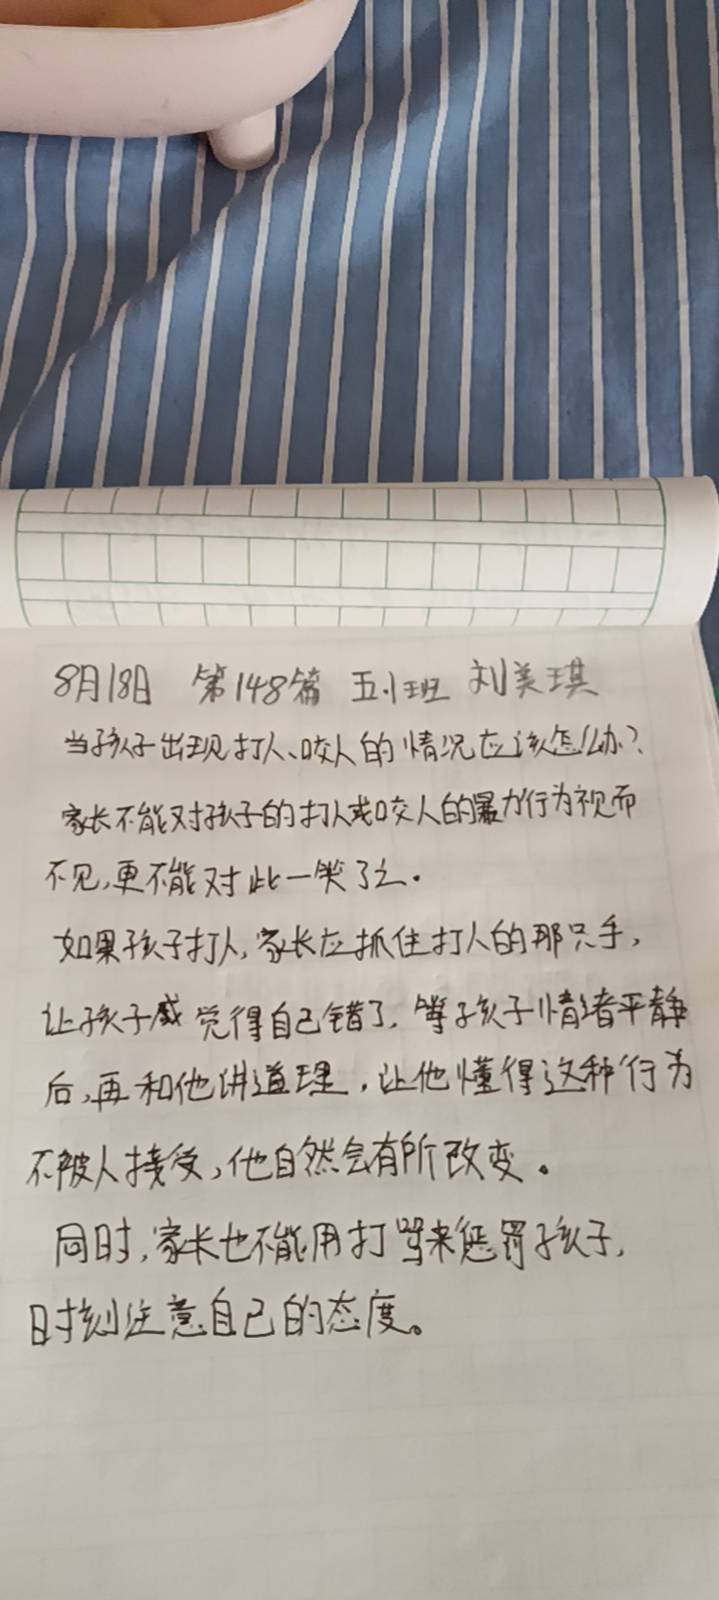 8月18日 第148篇 五1班 刘美琪
当孩子出现打人、咬人的情况应该怎么办?
家长不能对孩子的打人或咬人的暴力行为视而
不见,更不能对此一笑了之。
如果孩子打人,家长应抓住打人的那只手,
让孩子感觉得自己错了,等孩子情绪平静
后,再和他讲道理,让他懂得这种行为
不被人接受,他自然会有所改变。
同时,家长也不能用打骂来惩罚孩子,
时刻注意自己的态度。